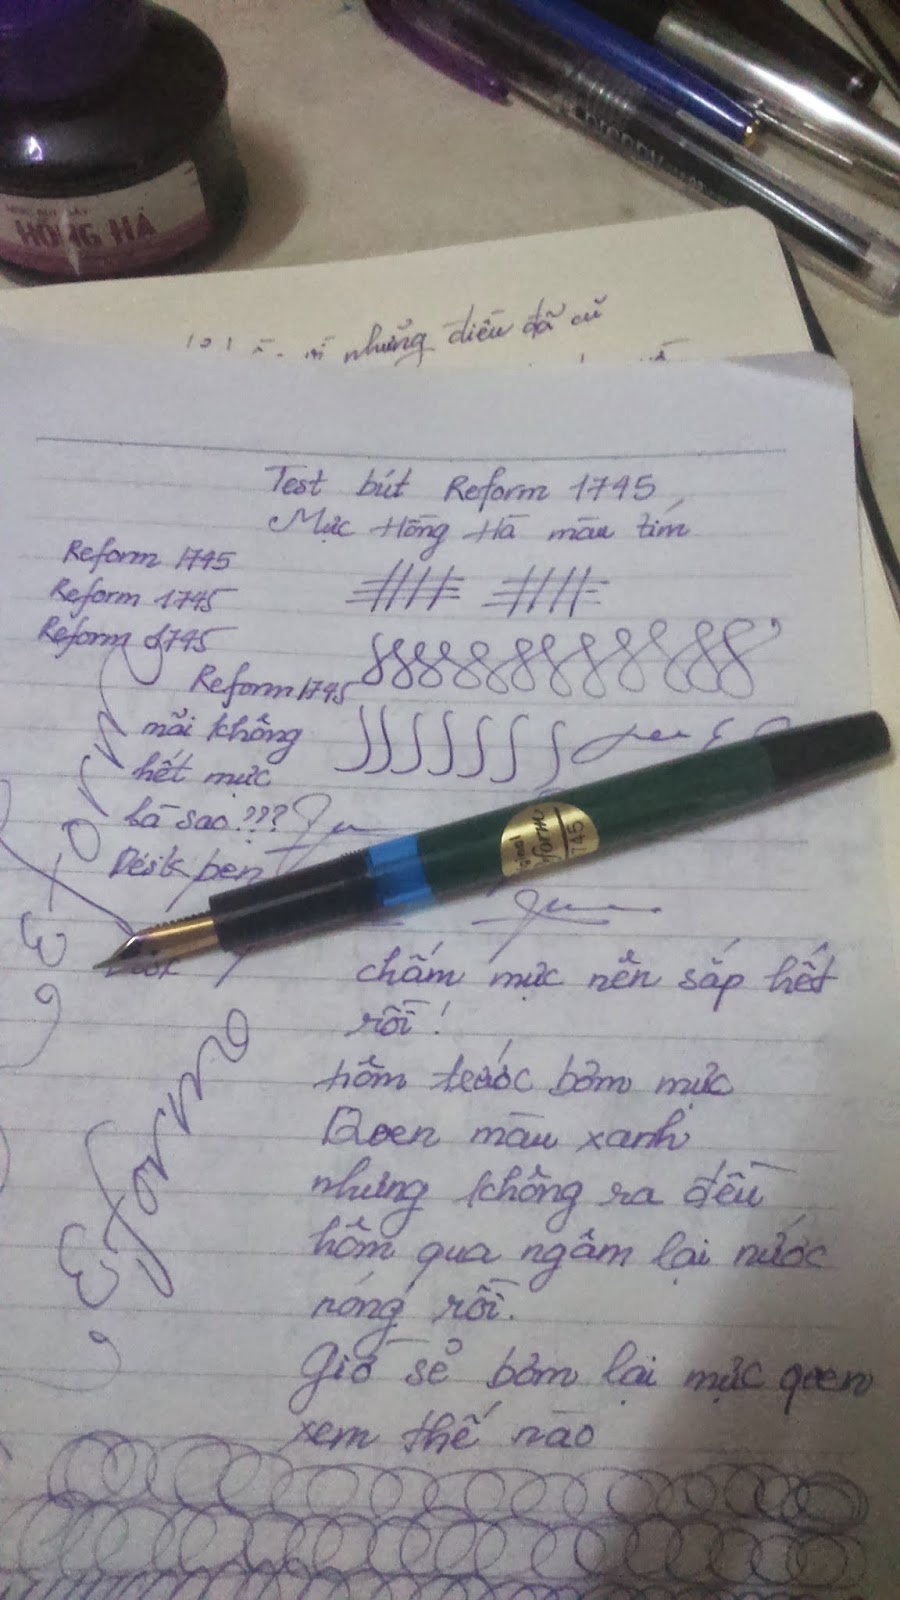 HỒNG HÀ
những điều đã cũ
Test bút Reform 1745
Mực Hồng Hà màu tím
Reform 1745
Reform 1745
Reform 1745
Reform 1745
mãi không
hết mực
là sao???
Desk pen
Eform
original
eform
1745
chấm mực nên sắp hết
rồi!
hôm trước bơm mực
Queen màu xanh
nhưng không ra đều
hôm qua ngâm lại nước
nóng rồi.
Giờ sẽ bơm lại mực queen
xem thế nào
Eform